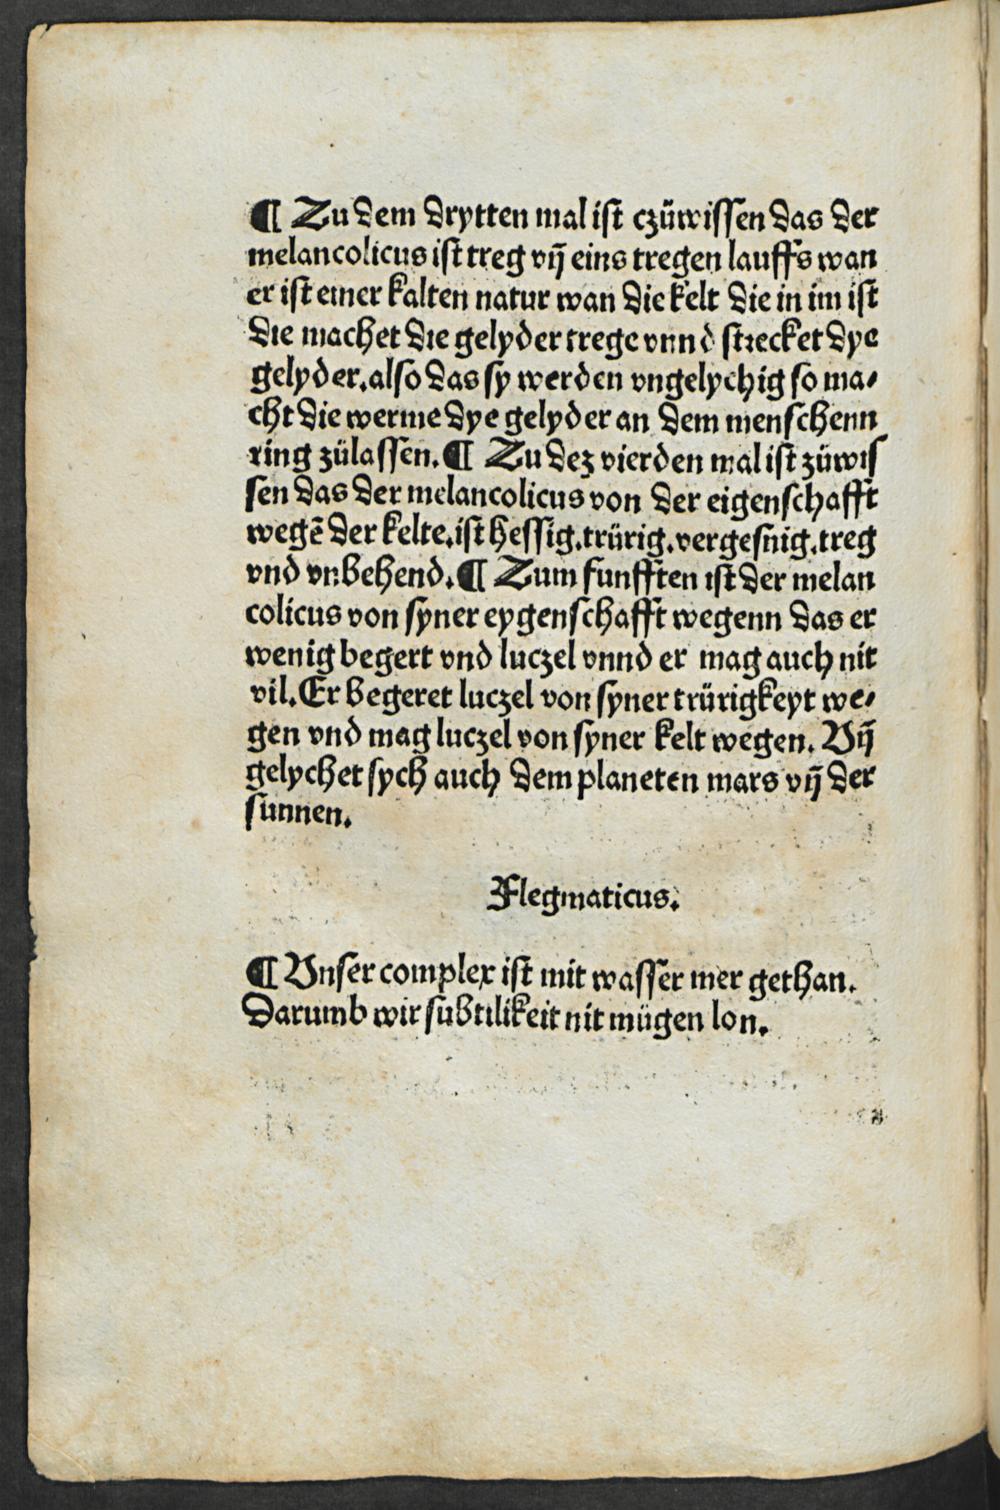 ¶ Zu dem drytten mal ist czüwissen das der
melancolicus ist treg vñ eins tregen lauffs wan
er ist einer kalten natur wan die kelt die in im ist
die machet die gelyder trege vnnd strecket dye
gelyder. also das sy werden vngelychig so ma⸗
cht die werme dye gelyder an dem menschenn
ring zülassen. ¶ Zu dez vierden mal ist züwis
sen das der melancolicus von der eigenschafft
wegē der kelte. ist hessig. trürig. vergesnig. treg
vnd vnbehend. ¶ Zum funfften ist der melan
colicus von syner eygenschafft wegenn das er
wenig begert vnd luczel vnnd er mag auch nit
vil. Er begeret luczel von syner trürigkeyt we⸗
gen vnd mag luczel von syner kelt wegen. Vñ
gelychet sych auch dem planeten mars vñ der
sunnen.
Flegmaticus.
¶ Vnser complex ist mit wasser mer gethan.
Darumb wir subtilikeit nit mügen lon.